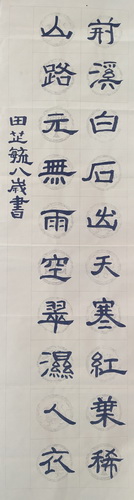 荊溪白石出天寒紅葉稀
山路元無雨空翠濕人衣
田芷毓八歲書